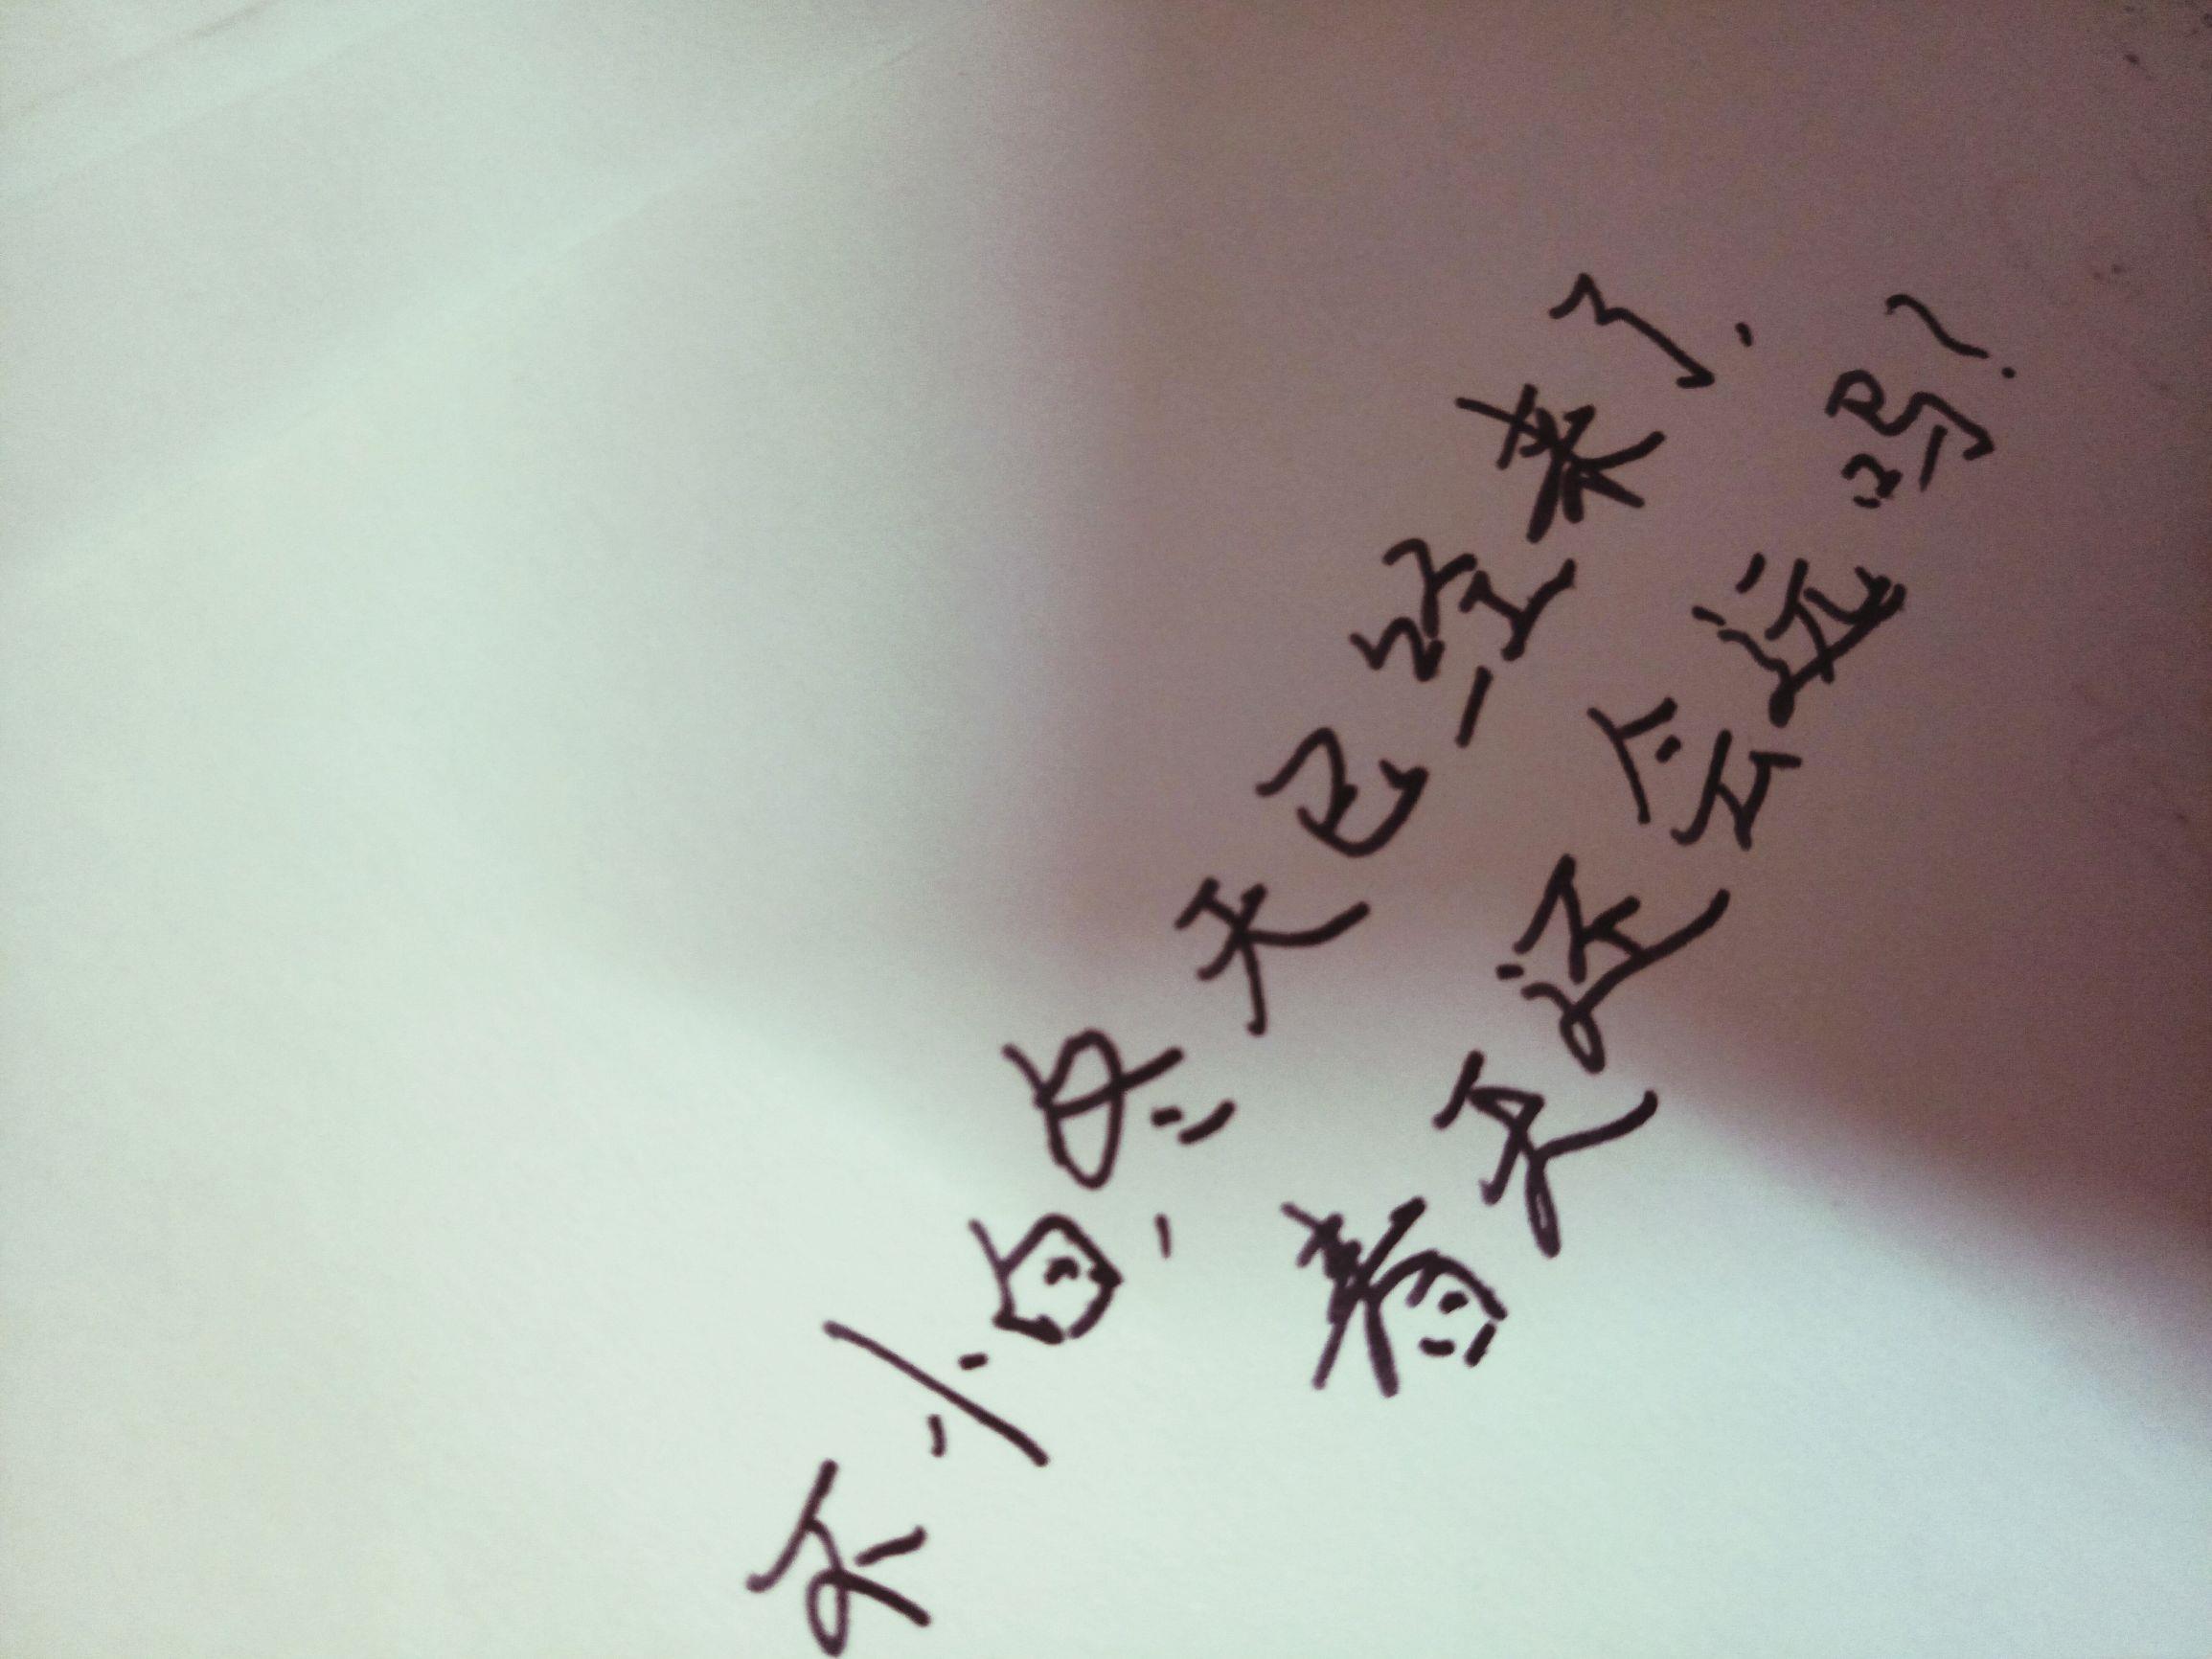 不必自卑，冬天已经来了，
春天还会远吗？